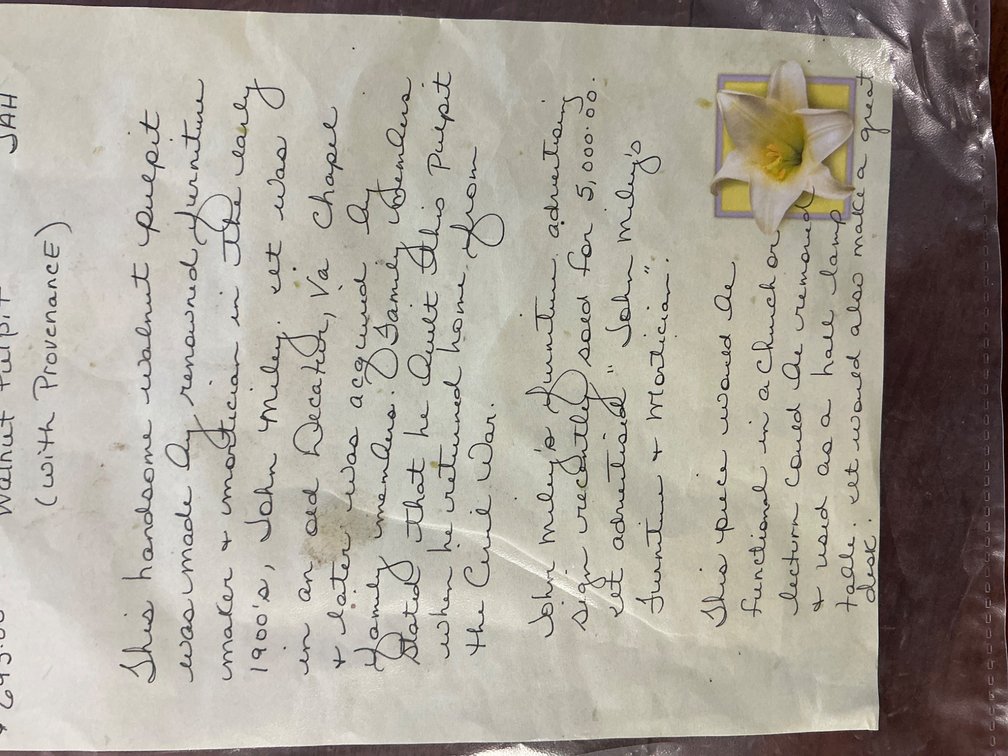 695.00 Walnut Pulpit JAH
(with Provenance)
This handsome walnut pulpit
was made by renowned furniture
maker & mortician in the early
1900's, John Miley. it was
in an old Decatur, Va Chapel
& later was acquired by
family members. Family members
stated that he built this Pulpit
when he returned home from
the Civil War.
John Miley's furniture advertising
sign recently sold for 5,000.00.
it advertised "John Miley's
Furnitu & Mortician".
This piece would be
functional in a church or
lecturn could be removed
& used as a hall lamp
table. it would also make a great
desk.